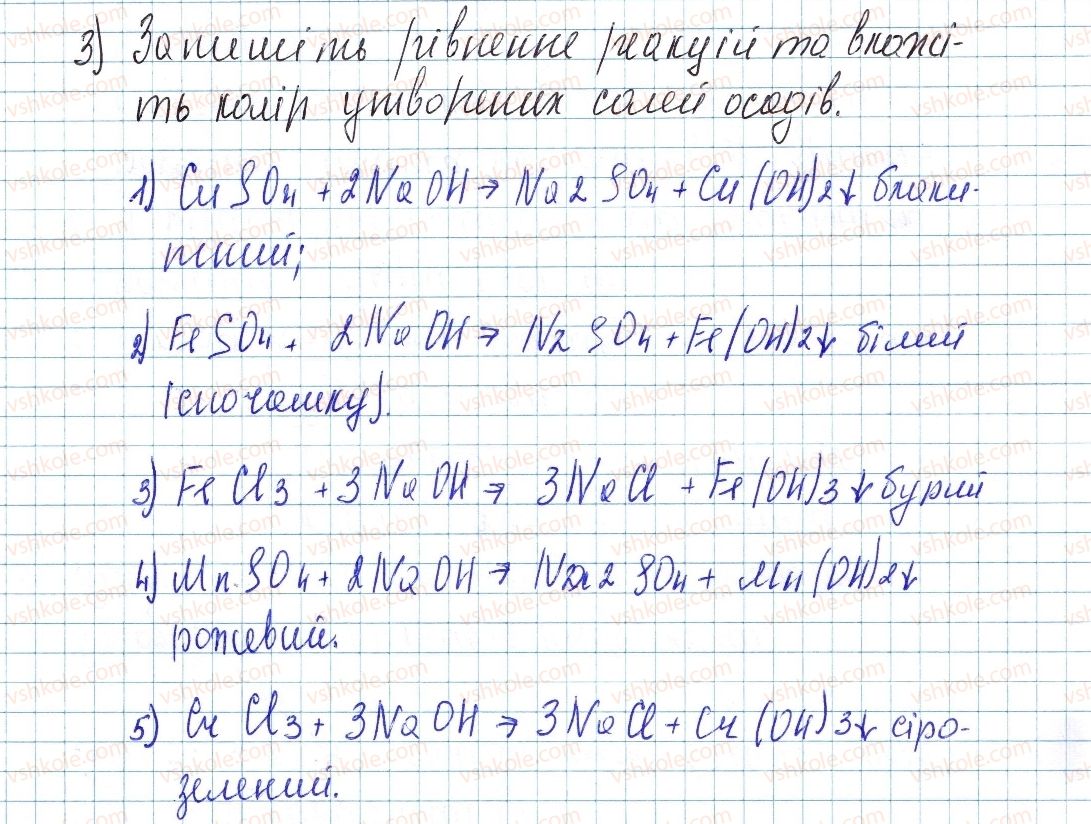 3) Запишіть рівненне реакцій та вкажі-
ть колір утворених солей осадів.
1) CuSO4 + 2NaOH → Na2SO4 + Cu(OH)2↓ блаки-
тний;
2) FeSO4 + 2NaOH → N2SO4 + Fe(OH)2↓ білий
(спочатку).
3) FeCl3 + 3NaOH → 3NaCl + Fe(OH)3↓ бурий
4) MnSO4 + 2NaOH → Na2SO4 + Mn(OH)2↓
рожевий.
5) CrCl3 + 3NaOH → 3NaCl + Cr(OH)3↓ сіро-
зелений.
vshkole.com